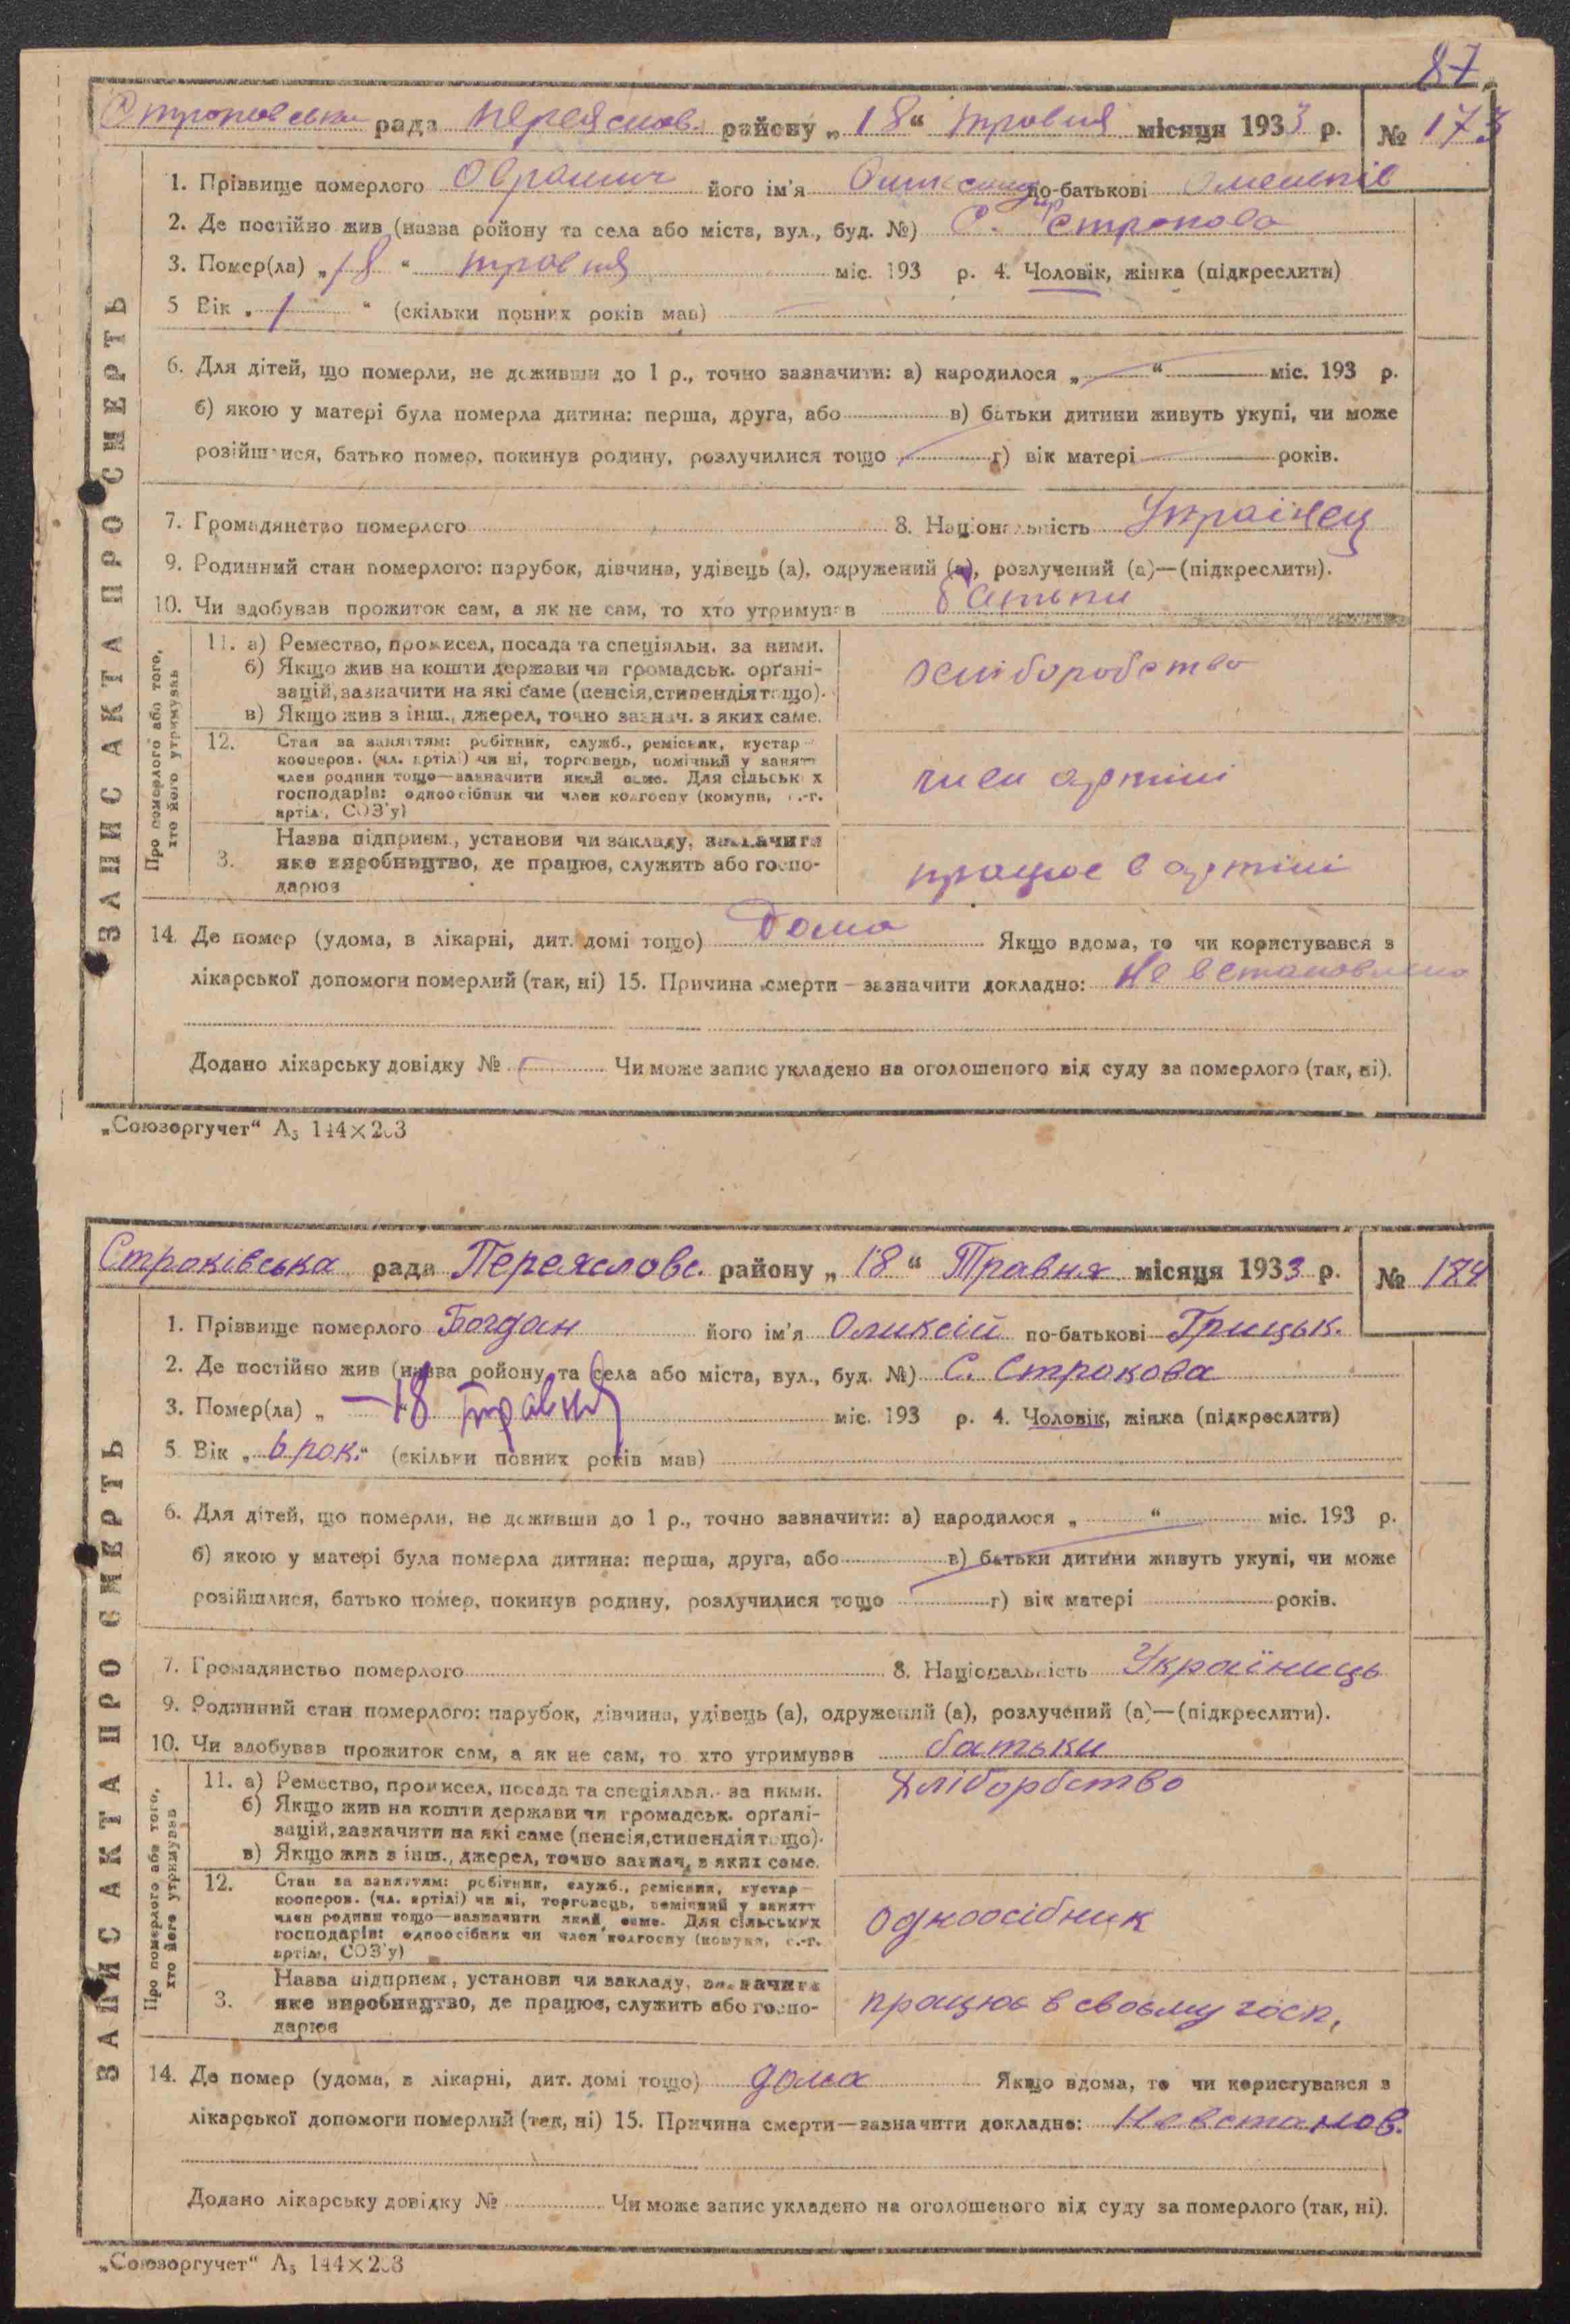 87
Строковська рада Переяслов. району „18“ травня місяця 1933 р. № 173
1. Прізвище померлого його ім'я по-батькові
2. Де постійно жив (назва ройону та села або міста, вул., буд. №) С. Строкова
3. Помер(ла) „18“ травня міс. 193 р. 4. Чоловік, жінка (підкреслити)
5 Вік „1“ (скільки повних років мав)
6. Для дітей, що померли, не доживши до 1 р., точно зазначити: а) народилося „ “ міс. 193 р.
б) якою у матері була померла дитина: перша, друга, або в) батьки дитини живуть укупі, чи може
розійшлися, батько помер, покинув родину, розлучилися тощо г) вік матері років.
7. Громадянство померлого 8. Національність Украінец
9. Родинний стан померлого: парубок, дівчина, удівець (а), одружений (а), розлучений (а)—(підкреслити).
10. Чи здобував прожиток сам, а як не сам, то хто утримував батьки
ЗАПИС АКТА ПРО СМЕРТЬ
Про померлого або того, хто його утримував
11. а) Ремество, промисел, посада та спеціяльн. за ними.
б) Якщо жив на кошти держави чи громадськ. орґані-
зацій, зазначити на які саме (пенсія, стипендія тощо).
в) Якщо жив з інш., джерел, точно зазнач. з яких саме.
хліборобство
12. Стан за заняттям: робітник, служб., ремісник, кустар
кооперов. (чл. артілі) чи ні, торговець, помічний у занятт
член родини тощо—зазначити який саме. Для сільських
господарів: одноосібник чи член колгоспу (комуни, с.-г.
артілі, СОЗ'у)
член артілі
3. Назва підприєм., установи чи закладу, зазначити
яке виробництво, де працює, служить або госпо-
дарює
працює в артілі
14. Де помер (удома, в лікарні, дит. домі тощо) Дома Якщо вдома, то чи користувався з
лікарської допомоги померлий (так, ні) 15. Причина смерти—зазначити докладно: Не встановлено
Додано лікарську довідку № Чи може запис укладено на оголошеного від суду за померлого (так, ні).
„Союзоргучет“ А5 144×203
Строківська рада Переяславс. району „18“ Травня місяця 1933 р. № 184
1. Прізвище померлого Богдан його ім'я Оликсій по-батькові Грицьк.
2. Де постійно жив (назва ройону та села або міста, вул., буд. №) С. Строкова
3. Помер(ла) „ 18 травня міс. 193 р. 4. Чоловік, жінка (підкреслити)
5. Вік „6 рок.“ (скільки повних років мав)
6. Для дітей, що померли, не доживши до 1 р., точно зазначити: а) народилося „ “ міс. 193 р.
б) якою у матері була померла дитина: перша, друга, або в) батьки дитини живуть укупі, чи може
розійшлися, батько помер, покинув родину, розлучилися тощо г) вік матері років.
7. Громадянство померлого 8. Національність Україниць
9. Родинний стан померлого: парубок, дівчина, удівець (а), одружений (а), розлучений (а)—(підкреслити).
10. Чи здобував прожиток сам, а як не сам, то хто утримував батьки
ЗАПИС АКТА ПРО СМЕРТЬ
Про померлого або того, хто його утримував
11. а) Ремество, промисел, посада та спеціяльн. за ними.
б) Якщо жив на кошти держави чи громадськ. орґані-
зацій, зазначити на які саме (пенсія, стипендія тощо).
в) Якщо жив з інш., джерел, точно зазнач. з яких саме.
Хліборбство
12. Стан за заняттям: робітник, служб., ремісник, кустар
кооперов. (чл. артілі) чи ні, торговець, помічний у занятт
член родини тощо—зазначити який саме. Для сільських
господарів: одноосібник чи член колгоспу (комуни, с.-г.
артілі, СОЗ'у)
одноосібник
3. Назва підприєм., установи чи закладу, зазначити
яке виробництво, де працює, служить або госпо-
дарює
працює в своєму госп.
14. Де помер (удома, в лікарні, дит. домі тощо) дома Якщо вдома, то чи користувався з
лікарської допомоги померлий (так, ні) 15. Причина смерти—зазначити докладно: Невстанов.
Додано лікарську довідку № Чи може запис укладено на оголошеного від суду за померлого (так, ні).
„Союзоргучет“ А5 144×203